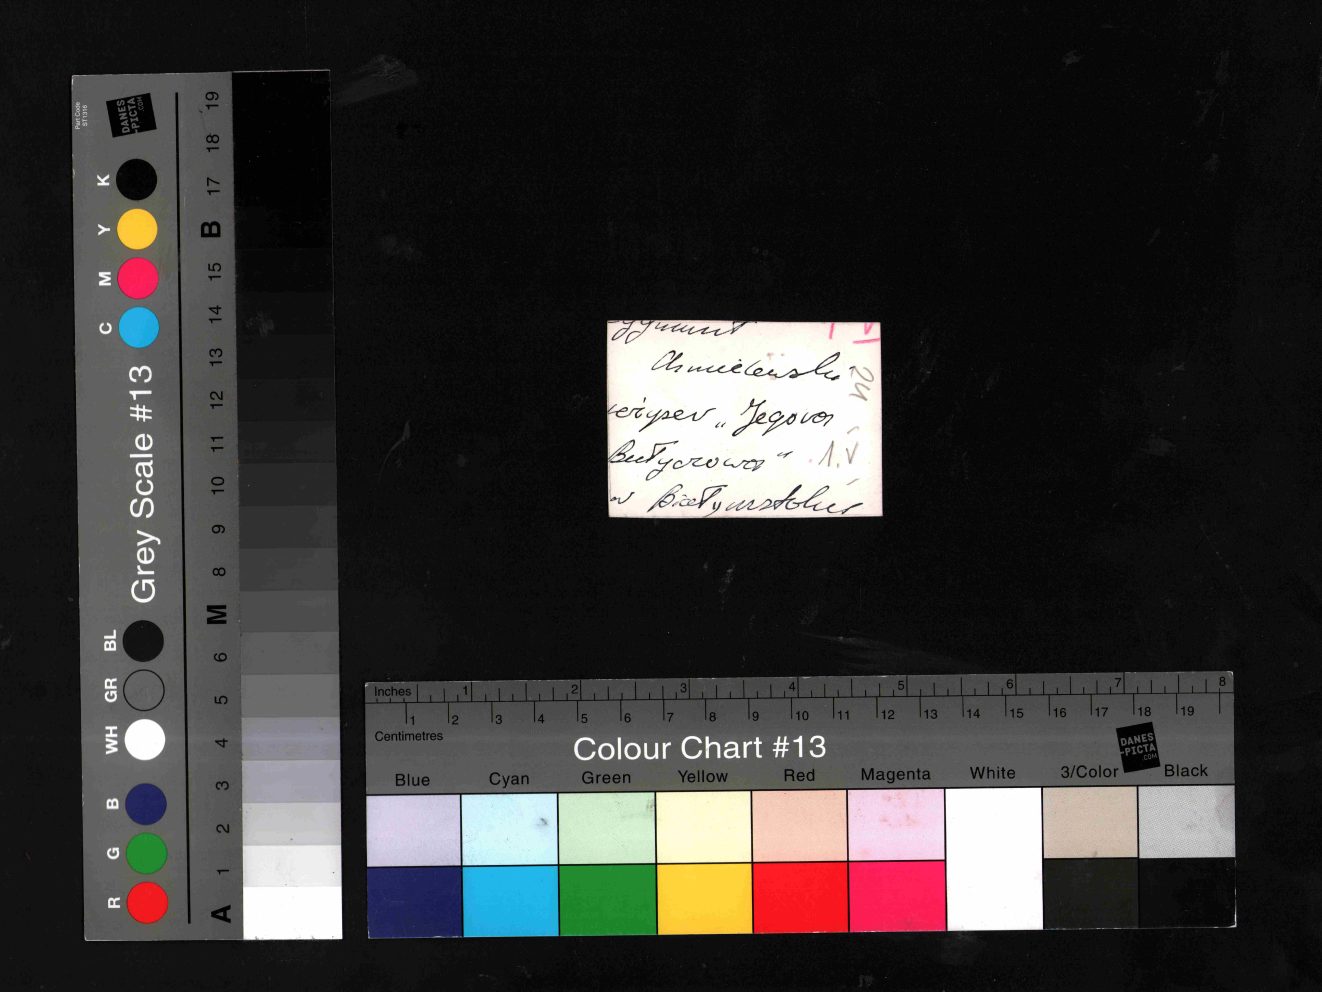 Part Code
ST1316
DANES
-PICTA
.COM
Grey Scale #13
R G B WH GR BL C M Y K
A 1 2 3 4 5 6 M 8 9 10 11 12 13 14 15 B 17 18 19
ygmunt
Chmielewski
"Jegora
Bułyczowa"
w Białymstoku
24
Inches 1 2 3 4 5 6 7 8
1 2 3 4 5 6 7 8 9 10 11 12 13 14 15 16 17 18 19
Centimetres
Colour Chart #13
DANES
-PICTA
.COM
Blue Cyan Green Yellow Red Magenta White 3/Color Black